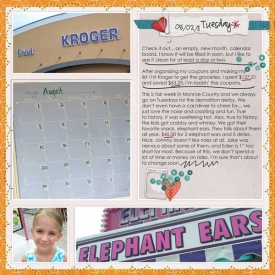 Food
KROGER
08/02/11 Tuesday
Check it out... an empty, new month, calendar
board. I know it will be filled in soon, but I like to
see it clean for at least a day or two.
After organizing my coupons and making my list I
hit Kroger to get the groceries. I spent
and saved $63.25. I'm rockin' the coupons!
This is fair week in Monroe County and we always
go on Tuesday for the demolition derby. We
don't even have a car/driver to cheer for... we
just love the noise and crashing and fun. True
to history, it was sweltering hot. Also, true to history,
the kids got crabby and whiney. We got their
favorite snack, elephant ears. They talk about them
all year. for 2 elephant ears and 5 drinks.
Nice. Johnny doesn't like rides at all. Jake was
nervous about some of them, and Eden is 1" too
short for most. Because of this, we don't spend a
lot of time or money on rides. I'm sure that's about
to change soon.
August
ELEPHANT EARS